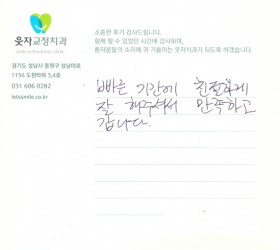 웃자교정치과
경기도 성남시 중원구 성남대로
1156 도원타워 3,4층
031 606 0282
letssmile.co.kr
소중한 후기 감사드립니다.
함께 할 수 있었던 시간에 감사하며,
환자분들의 소리에 귀 기울이는 웃자치과가 되도록 하겠습니다.
빠른 기간에 친절하게
잘 해주셔서 만족하고
갑니다.